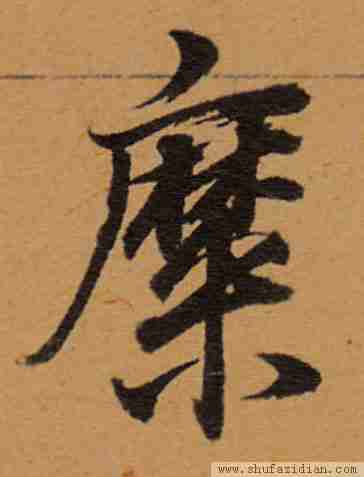 糜
www.shufazidian.com